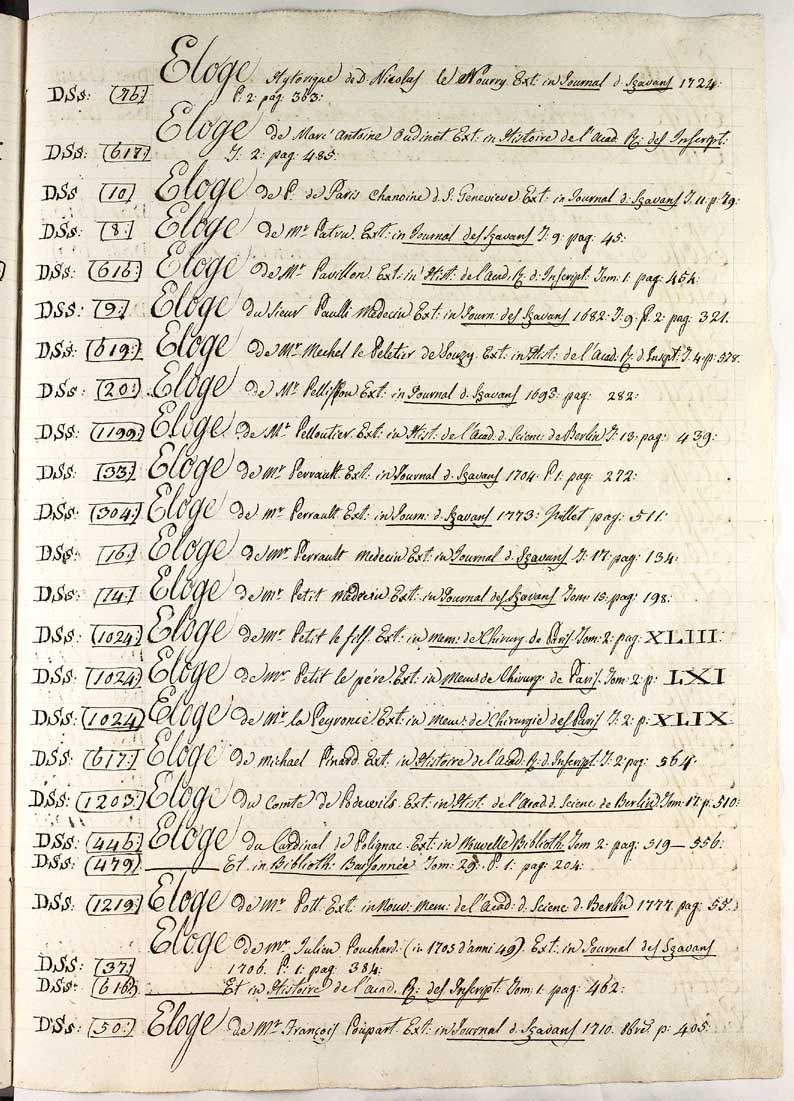 Eloge Hystorique de D. Nicolas le Nourry. Ext: in Journal d. Sçavans 1724:
DSs: (76:) P: 2: pag: 363:
Eloge de Marc Antoine Oudinet. Ext: in Histoire de l'Acad: R: des Inscript:
DSs: (617:) T: 2: pag: 485:
DSs (10:) Eloge de P. de Paris Chanoine d. S. Genevieve Ext: in Journal d: Sçavans T: 11: p: 79:
DSs: (8:) Eloge de Mr Patru. Ext: in Journal des Sçavans T: 9: pag: 45:
DSs: (616:) Eloge de Mr Pavillon. Ext: in Hist: de l'Acad: R: d: Inscript: Tom: 1: pag: 454:
DSs: (9:) Eloge du Sieur Paulli Medecin Ext: in Journ: des Sçavans 1682: T: 9: P: 2: pag: 321.
DSs: (619:) Eloge de Mr Mechel le Peletier de Souzy. Ext: in Hist: de l'Acad: R: d: Inscpt: T: 4: p: 578.
DSs: (20:) Eloge de Mr Pellisson Ext: in Journal d. Sçavans 1693: pag: 282:
DSs: (1199:) Eloge de Mr Pelloutier. Ext: in Hist: de l'Acad: d. Scienc: de Berlin T: 13: pag: 439:
DSs: (33:) Eloge de Mr Perrault. Ext: in Journal d. Sçavans 1704: P: 1: pag: 272:
DSs: (304:) Eloge de Mr Perrault Ext: in Journ: d. Sçavans 1773: Juillet pag: 511:
DSs: (16:) Eloge de Mr Perrault Medecin Ext: in Journal d. Sçavans T: 17: pag: 134:
DSs: (14:) Eloge de Mr Petit Medecin Ext: in Journal des Sçavans Tom: 15: pag: 198:
DSs: (1024:) Eloge de Mr Petit le fils. Ext: in Mem: de Chirurg de Paris Tom: 2: pag: XLIII:
DSs: (1024:) Eloge de Mr Petit le pére. Ext: in Mem: de Chirurg: de Paris. Tom: 2: p: LXI
DSs: (1024:) Eloge de Mr la Peyronee Ext: in Mem: de Chirurgie des Paris T: 2: p: XLIX:
DSs: (617:) Eloge de Michael Pinard. Ext: in Histoire de l'Acad: R: d. Inscript: T: 2: pag: 564:
DSs: (1203:) Eloge du Comte de Podewils. Ext: in Hist: de l'Acad: d. Scienc: de Berlin Tom: 17: p: 510:
DSs: (446:) Eloge du Cardinal de Polignac. Ext: in Nouvelle Biblioth: Tom 2: pag: 519 — 556:
DSs: (479:) ——— Et in Biblioth: Raisonnée Tom: 29: P: 1: pag: 204:
DSs: (1219:) Eloge de Mr Pott. Ext: in Nouv: Mem: de l'Acad: d. Scienc: d. Berlin 1777. pag: 55.
Eloge de Mr Julien Pouchard. (in 1705 d'anni 49). Ext: in Journal des Sçavans
DSs: (37:) 1706. P: 1: pag: 384:
DSs: (616:) ——— Et in Histoire de l'Acad: R: des Inscript: Tom: 1: pag: 462:
DSs: (50:) Eloge de Mr François Poupart. Ext: in Journal d. Sçavans 1710. p: 405: